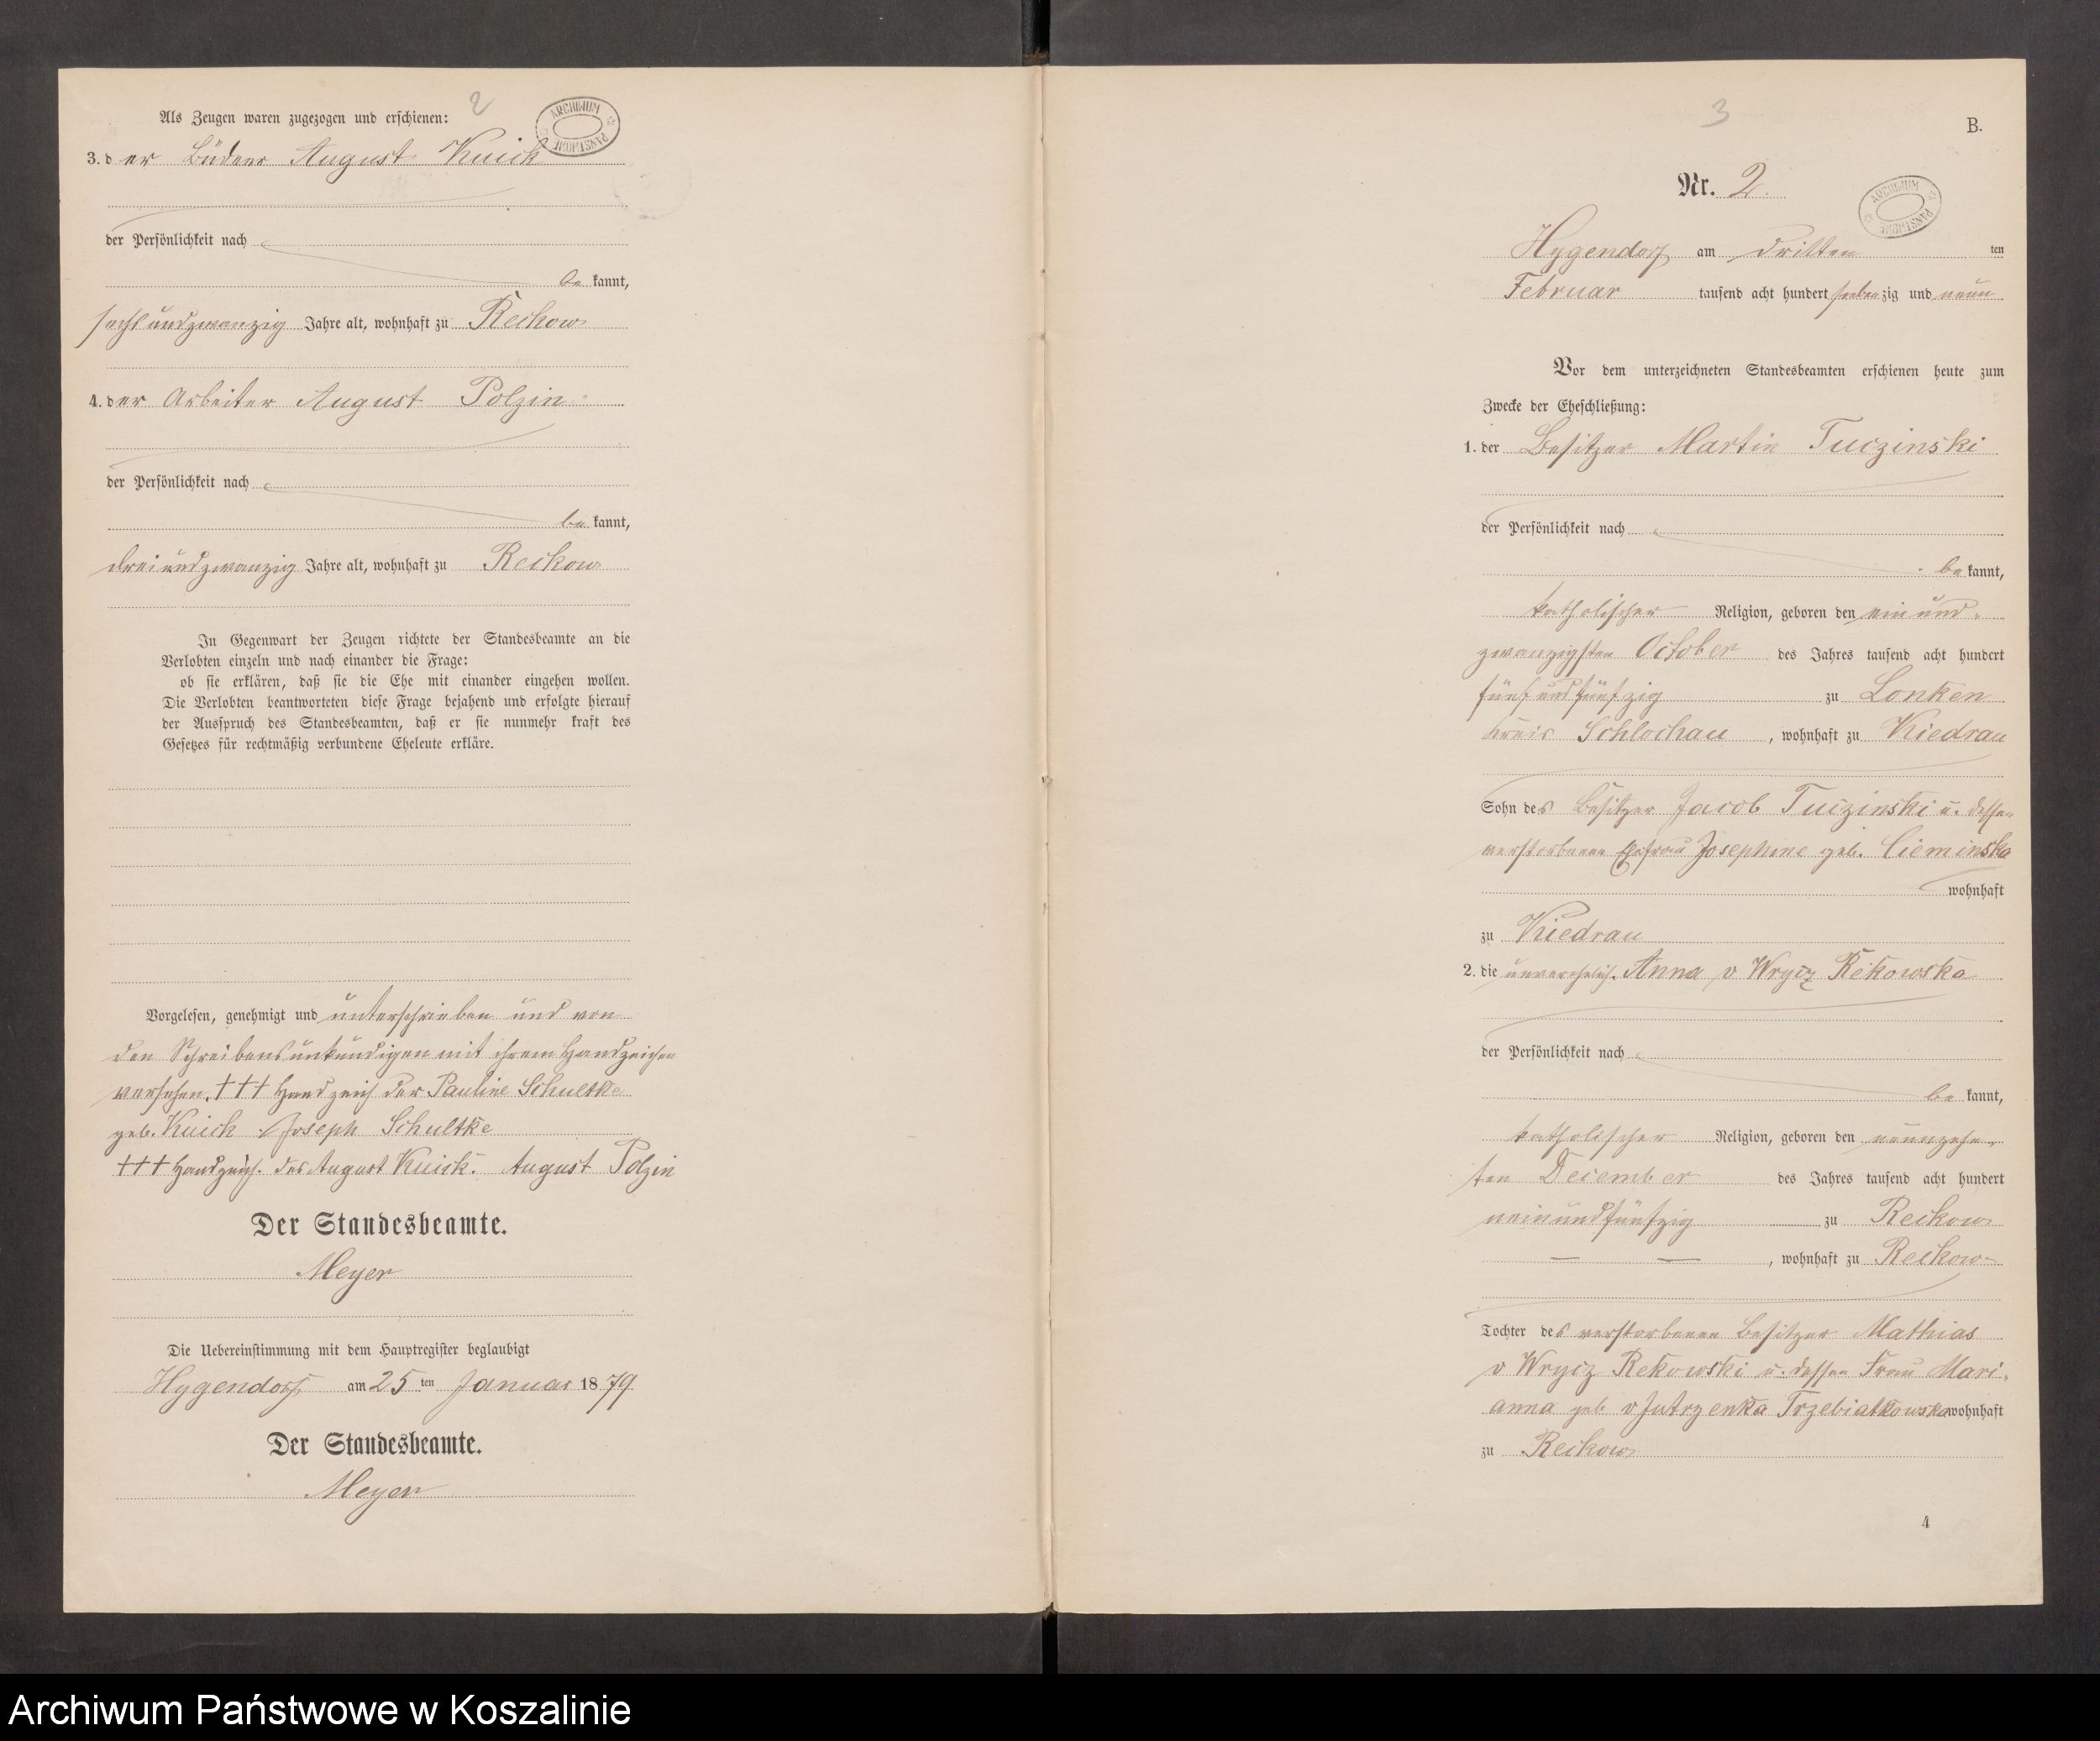 2
ARCHIWUM PAŃSTWOWE
Als Zeugen waren zugezogen und erschienen:
3. der Büdner August Kuick
der Persönlichkeit nach
be kannt,
sechsundzwanzig Jahre alt, wohnhaft zu Reckow
4. der Arbeiter August Polzin
der Persönlichkeit nach
be kannt,
dreiundzwanzig Jahre alt, wohnhaft zu Reckow
In Gegenwart der Zeugen richtete der Standesbeamte an die
Verlobten einzeln und nach einander die Frage:
ob sie erklären, daß sie die Ehe mit einander eingehen wollen.
Die Verlobten beantworteten diese Frage bejahend und erfolgte hierauf
der Ausspruch des Standesbeamten, daß er sie nunmehr kraft des
Gesetzes für rechtmäßig verbundene Eheleute erkläre.
Vorgelesen, genehmigt und unterschrieben und von
den Schreibensunkundigen mit ihrem Handzeichen
versehen. +++ Handzeich der Pauline Schultke
geb. Kuick. Joseph Schultke
+++ Handzeich. des August Kuick. August Polzin
Der Standesbeamte.
Meyer
Die Uebereinstimmung mit dem Hauptregister beglaubigt
Hygendorf am 25 ten Januar 18 79
Der Standesbeamte.
Meyer
3
B.
Nr. 2.
ARCHIWUM PAŃSTWOWE
Hygendorf am dritten ten
Februar tausend acht hundert siebenzig und neun
Vor dem unterzeichneten Standesbeamten erschienen heute zum
Zwecke der Eheschließung:
1. der Besitzer Martin Tuczinski
der Persönlichkeit nach
be kannt,
katholischer Religion, geboren den einund-
zwanzigsten October des Jahres tausend acht hundert
fünfundfünfzig zu Lonken
Kreis Schlochau, wohnhaft zu Kiedrau
Sohn des Besitzer Jacob Tuczinski u. dessen
verstorbenen Ehefrau Josephine geb. Cieminska
wohnhaft
zu Kiedrau
2. die unverehelich. Anna v Wrycz Rekowska
der Persönlichkeit nach
be kannt,
katholischer Religion, geboren den neunzehn-
ten December des Jahres tausend acht hundert
neinundfünfzig zu Reckow
— —, wohnhaft zu Reckow
Tochter des verstorbenen Besitzer Mathias
v Wrycz Rekowski u. dessen Frau Mari-
anna geb v Jutrzenka Trzebiatkowska wohnhaft
zu Reckow
4
Archiwum Państwowe w Koszalinie